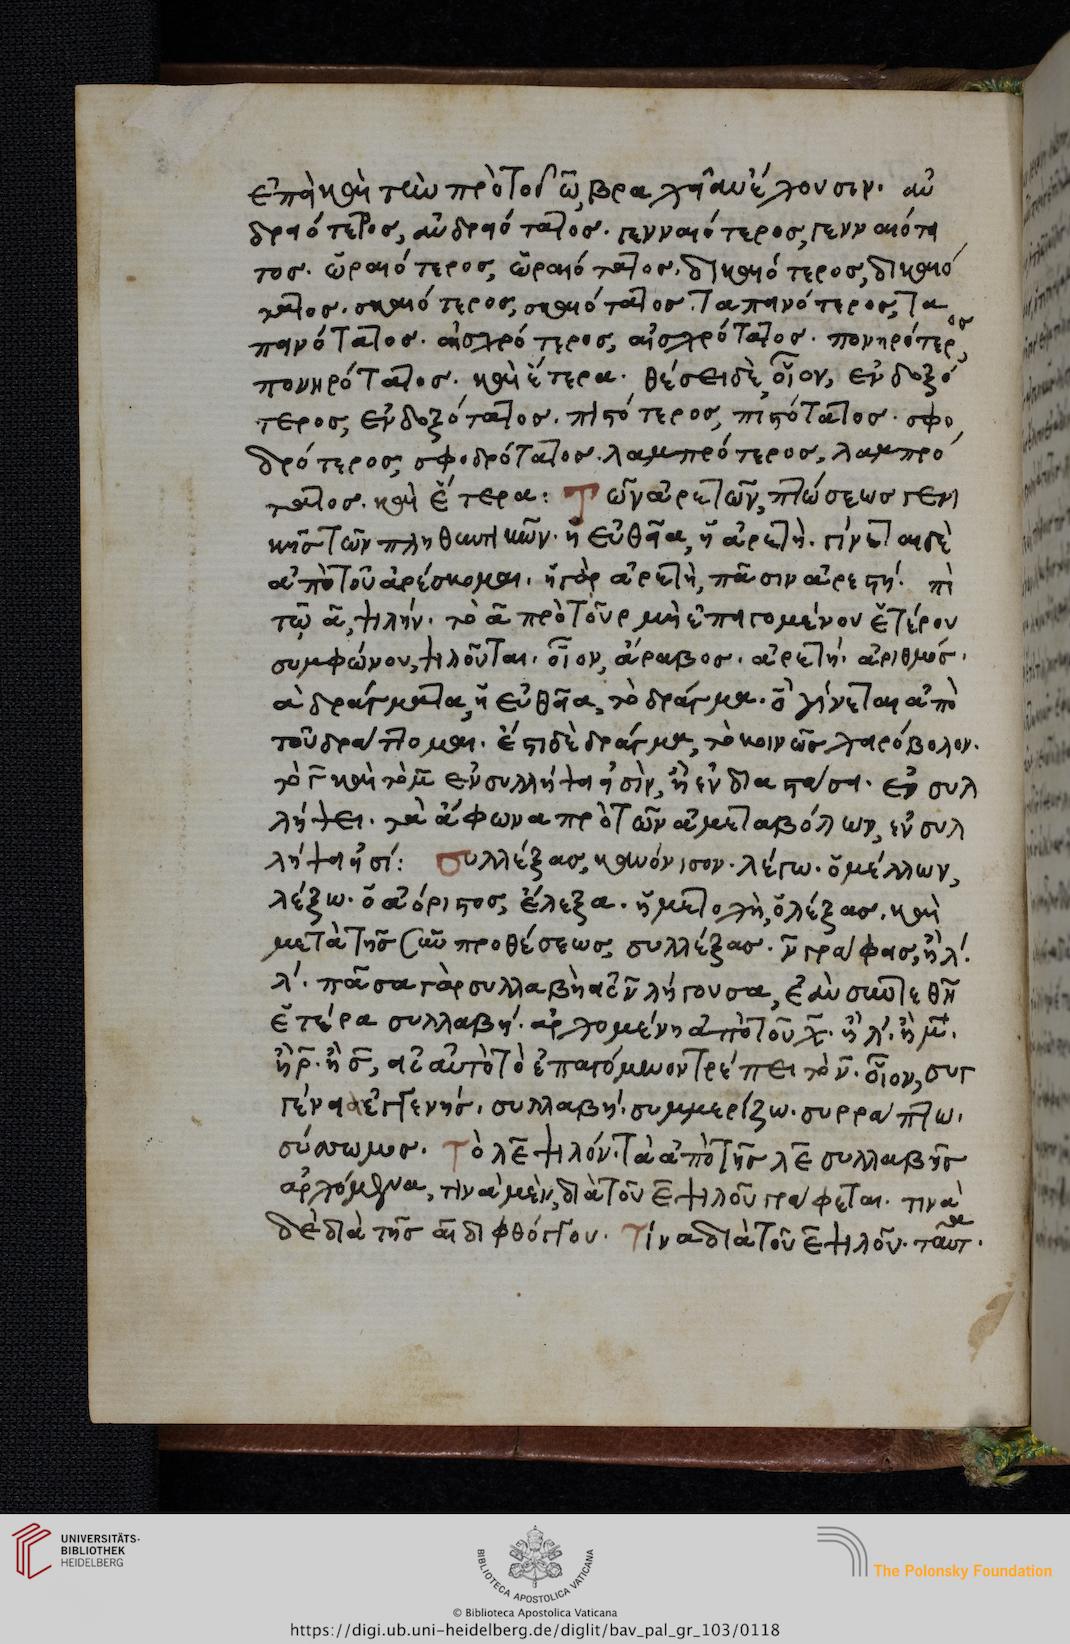 δραιότερος, ἀνδραιότατος. γενναιότερος, γενναιότα
τος. ὡραιότερος, ὡραιότατος. δικαιότερος, δικαιό
τατος. σκαιότερος, σκαιότατος. ταπεινότερος, τα
πεινότατος. αἰσχρότερος, αἰσχρότατος. πονηρότερος,
πονηρότατος. καὶ ἕτερα. θέσει δὲ, οἷον, ἐνδοξό
τερος, ἐνδοξότατος. πιστότερος, πιστότατος. σφο
δρότερος, σφοδρότατος. λαμπρότερος, λαμπρό
τατος. καὶ ἕτερα: Τῶν ἀρετῶν, πτώσεως γενι
κῆς τῶν πληθυντικῶν. ἡ εὐθεῖα, ἡ ἀρετή. γίνεται δὲ
ἀπὸ τοῦ ἀρέσκομαι. ἡ γὰρ ἀρετὴ, πᾶσιν ἀρεστή.
τῶ α, ψιλόν. τὸ α πρὸ τοῦ ρ μὴ ἐπαγομένου ἑτέρου
συμφώνου, ψιλοῦται. οἷον, ἄραβος. ἀρετή. ἀριθμός.
ἁ δράγματα, ἡ εὐθεῖα, τὸ δράγμα. ὃ γίνεται ἀπὸ
τοῦ δράττομαι. ἔστι δὲ δράγμα, τὸ κοινῶς χερόβολον.
τὸ γ καὶ τὸ μ ἐν συλλήψει εἰσὶν, ἢ ἐν διαστάσει. ἐν συλ
λήψει. τὰ ἄφωνα πρὸ τῶν ἀμεταβόλων, ἐν συλ
λήψει εἰσί: Συλλέξας, κανόνισον. λέγω. ὁ μέλλων,
λέξω. ὁ ἀόριστος, ἔλεξα. ἡ μετοχὴ, ὁ λέξας. καὶ
μετὰ τῆς σὺν προθέσεως, συλλέξας. ν γράφεις, ἢ λ.
λ. πᾶσα γὰρ συλλαβὴ εἰς ν λήγουσα, ἐὰν συντεθῇ
ἑτέρα συλλαβή. ἀρχομένη ἀπὸ τοῦ γ. ἢ λ. ἢ μ.
ἢ ρ. ἢ σ, εἰς αὐτὸ τὸ ἐπαγόμενον τρέπει τὸ ν. οἷον, συγ
γένεια συγγενής. συλλαβή. συμμερίζω. συρράπτω.
σύσσωμος. Τὸ λε ψιλόν. τὰ ἀπὸ τῆς λε συλλαβῆς
ἀρχόμενα, τινὰ μὲν, διὰ τοῦ ε ψιλοῦ γράφεται. τινὰ
δὲ διὰ τῆς αι διφθόγγου. Τίνα διὰ τοῦ ε ψιλοῦ. ταῦτα.
UNIVERSITÄTS-
BIBLIOTHEK
HEIDELBERG
BIBLIOTECA APOSTOLICA VATICANA
The Polonsky Foundation
© Biblioteca Apostolica Vaticana
https://digi.ub.uni-heidelberg.de/diglit/bav_pal_gr_103/0118